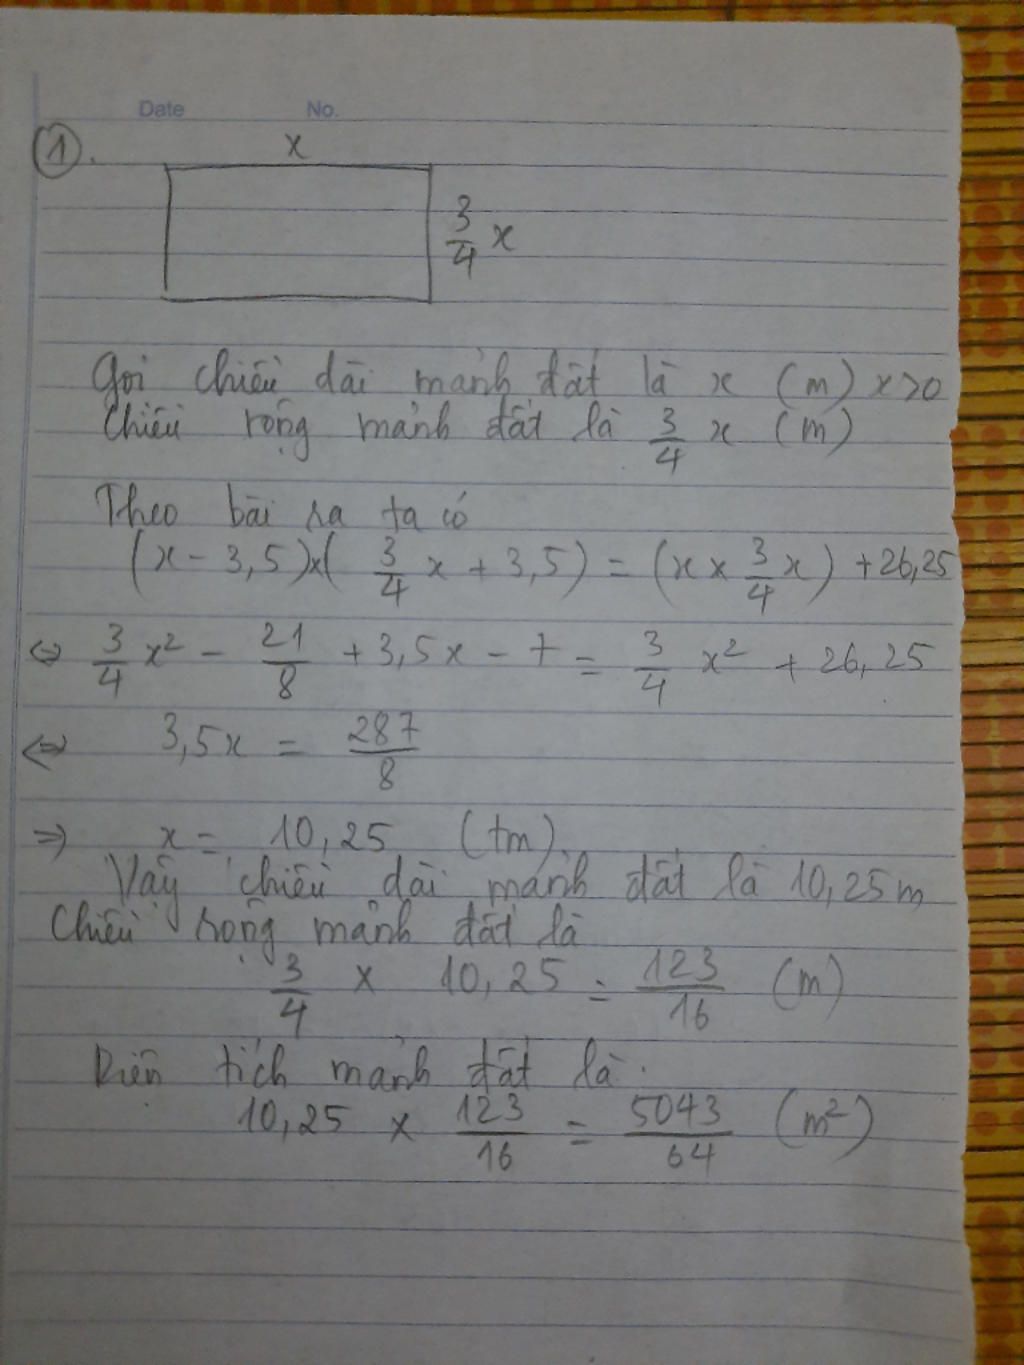 Date No.
1.
x
3/4 x
Gọi chiều dài mảnh đất là x (m) x>0
Chiều rộng mảnh đất là 3/4 x (m)
Theo bài ra ta có
(x - 3,5)x( 3/4 x + 3,5) = (x x 3/4 x) + 26,25
⇔ 3/4 x² - 21/8 + 3,5x - 7 = 3/4 x² + 26,25
⇔ 3,5x = 287/8
⇒ x = 10,25 (tm).
Vậy chiều dài mảnh đất là 10,25m
Chiều rộng mảnh đất là
3/4 x 10,25 = 123/16 (m)
Diện tích mảnh đất là.
10,25 x 123/16 = 5043/64 (m²)